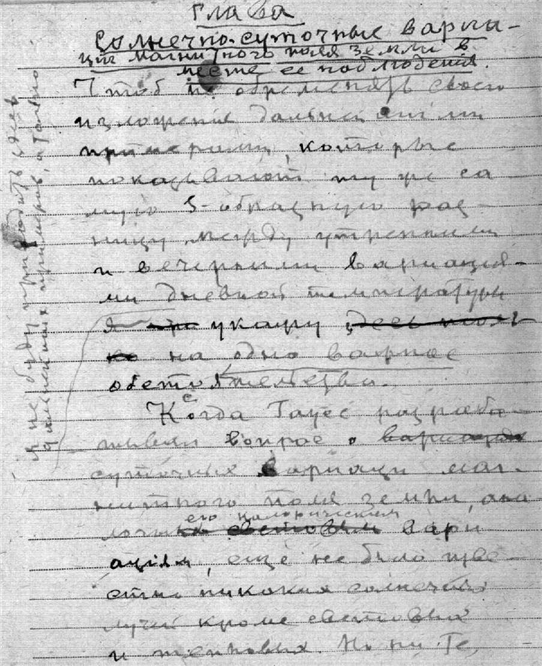 Глава
Солнечно-суточные вариа-
ции магнитного поля земли в
месте ее наблюдения.
Чтоб не обременять своего
изложения дальнейшими
примерами, которые
показывают ту же са
мую S-образную раз
ницу между утренними
и вечерними вариация-
ми дневной температуры
я укажу здесь толь
ко на одно важное
обстоятельство.
Когда Гаусс разраба
тывал вопрос о вариациях
суточных вариаци маг-
нитного поля земли, ана
логич его калорическим
световым вари
ациям, еще не было изве
стно никаких солнечных
лучей кроме световых
и тепловых. Но ни Те,
Я не буду приводить здесь
дальнейших примеров, а только